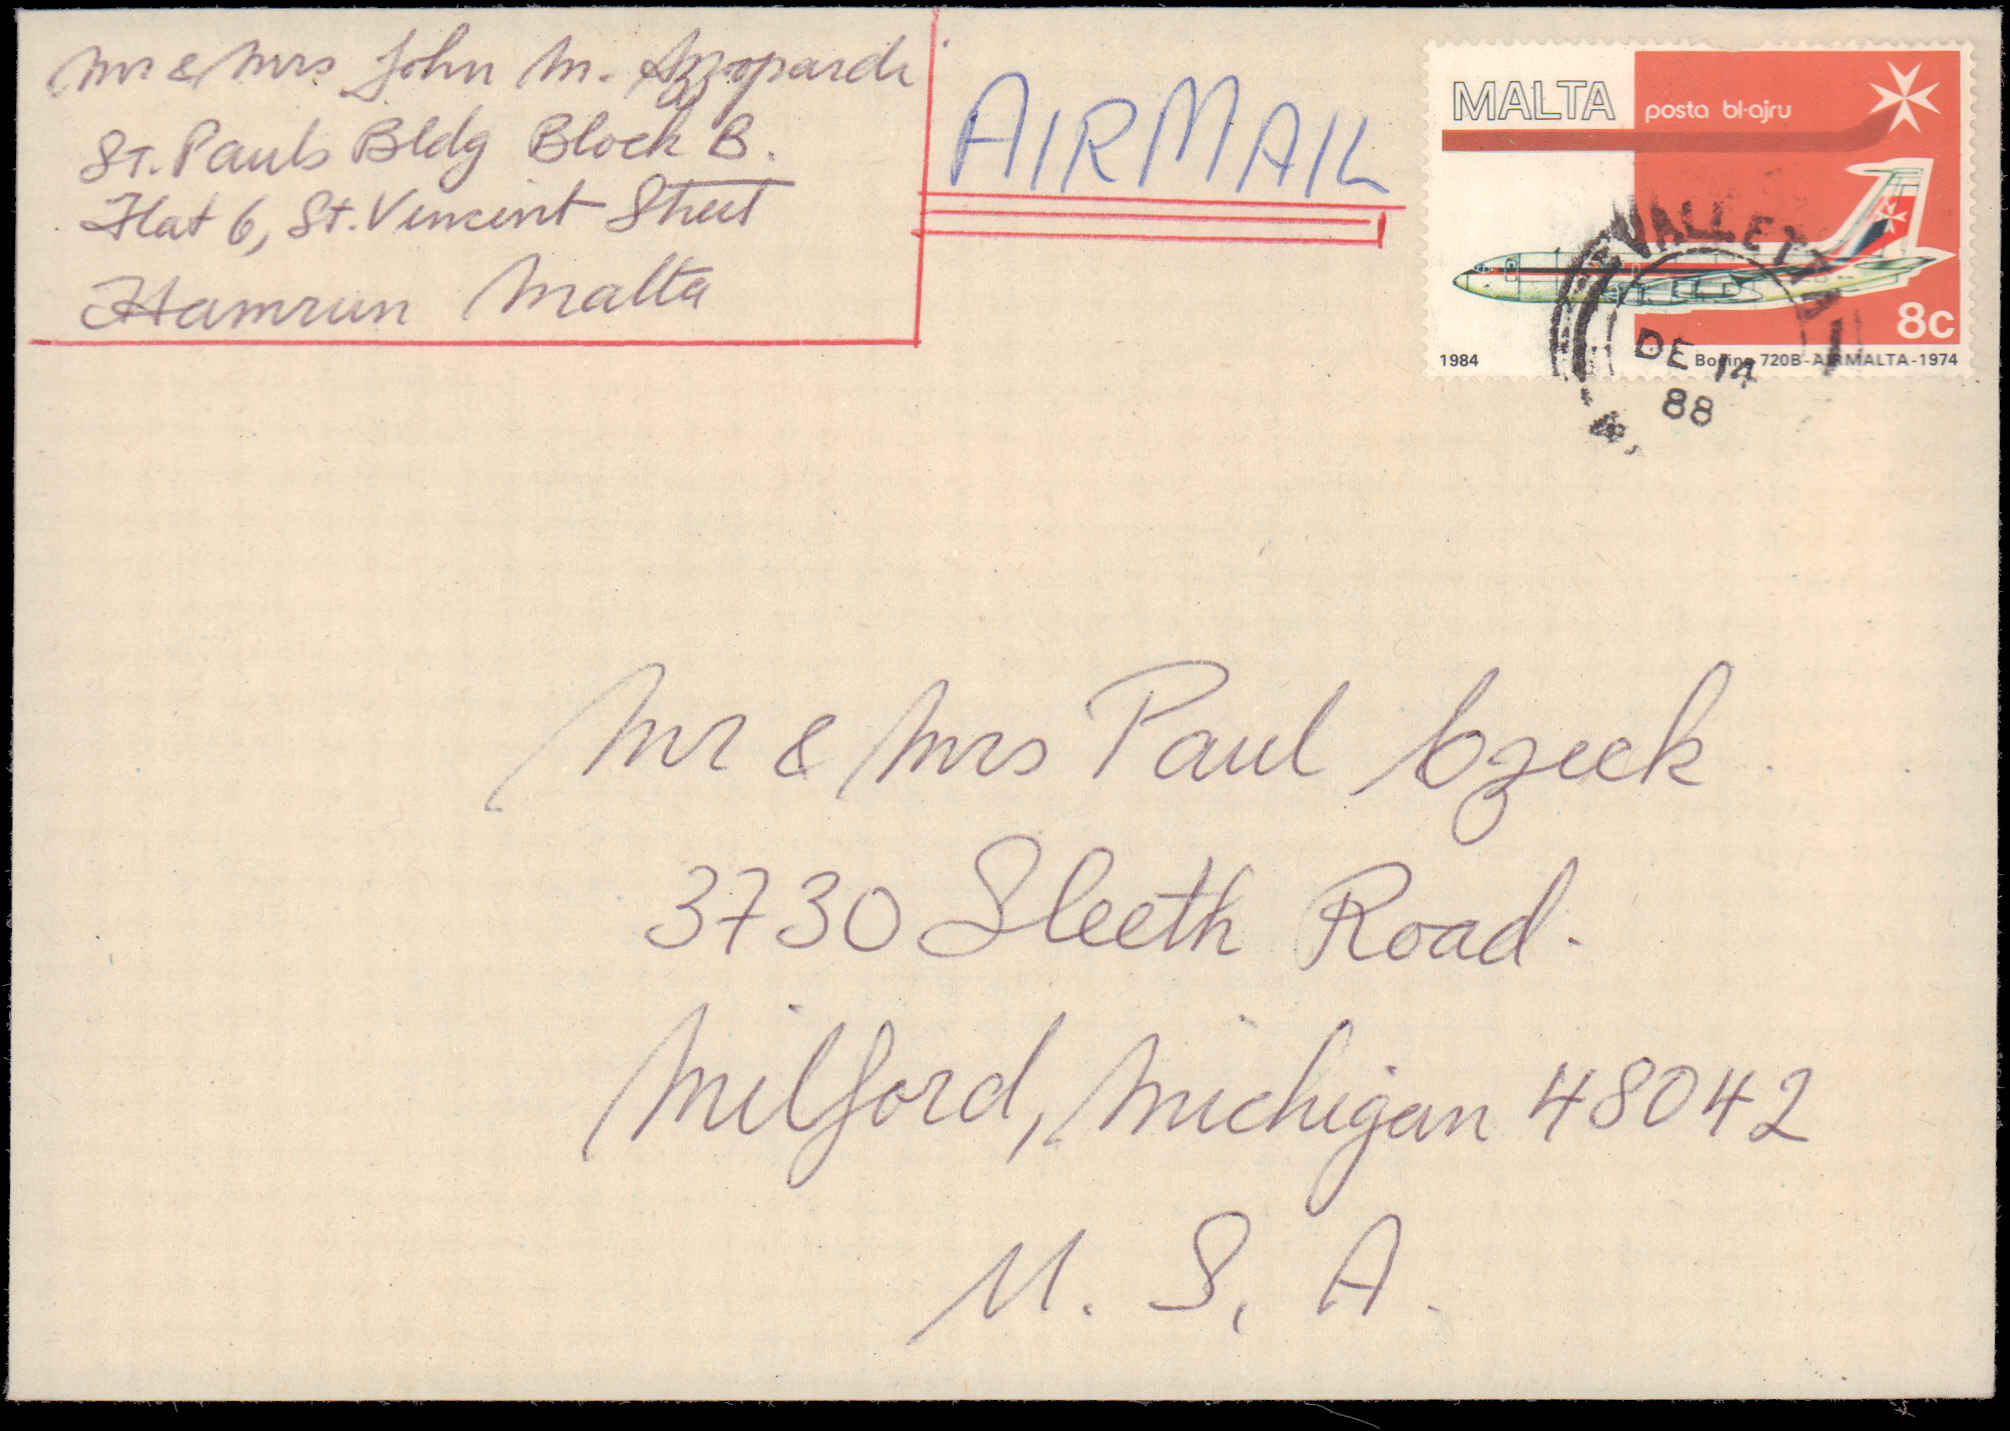 Mr & Mrs John M. Azzopardi
St. Pauls Bldg Block B.
Flat 6, St. Vincent Street
Hamrun Malta
AIRMAIL
MALTA posta bl-ajru
8c
1984 Boeing 720B-AIRMALTA-1974
VALLETTA
DE 14
88
Mr & Mrs Paul Czeck
3730 Sleeth Road.
Milford, Michigan 48042
U. S. A.